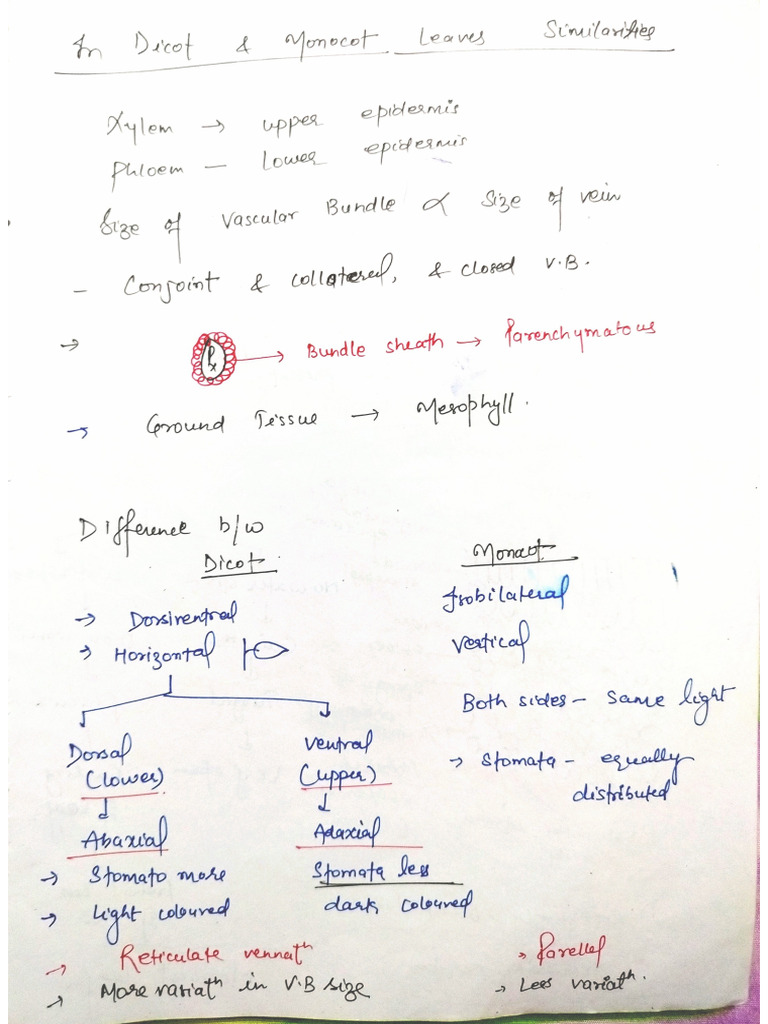 In Dicot & Monocot Leaves Similarities
Xylem → upper epidermis
Phloem — Lower epidermis
Size of Vascular Bundle ∝ Size of vein
- Conjoint & collateral, & closed V.B.
→ Px → Bundle sheath → Parenchymatous
→ Ground Tissue → Mesophyll.
Difference b/w
Dicot
Monocot
→ Dorsiventral
Isobilateral
→ Horizontal
Vertical
Both sides - Same light
Dorsal
(lower)
Ventral
(upper)
→ Stomata - equally
distributed
Abaxial
Adaxial
→ Stomato more
Stomata less
→ Light coloured
dark coloured
→ Reticulate vennatn
→ Parellel
→ More variatn in V.B size
→ Less variatn.